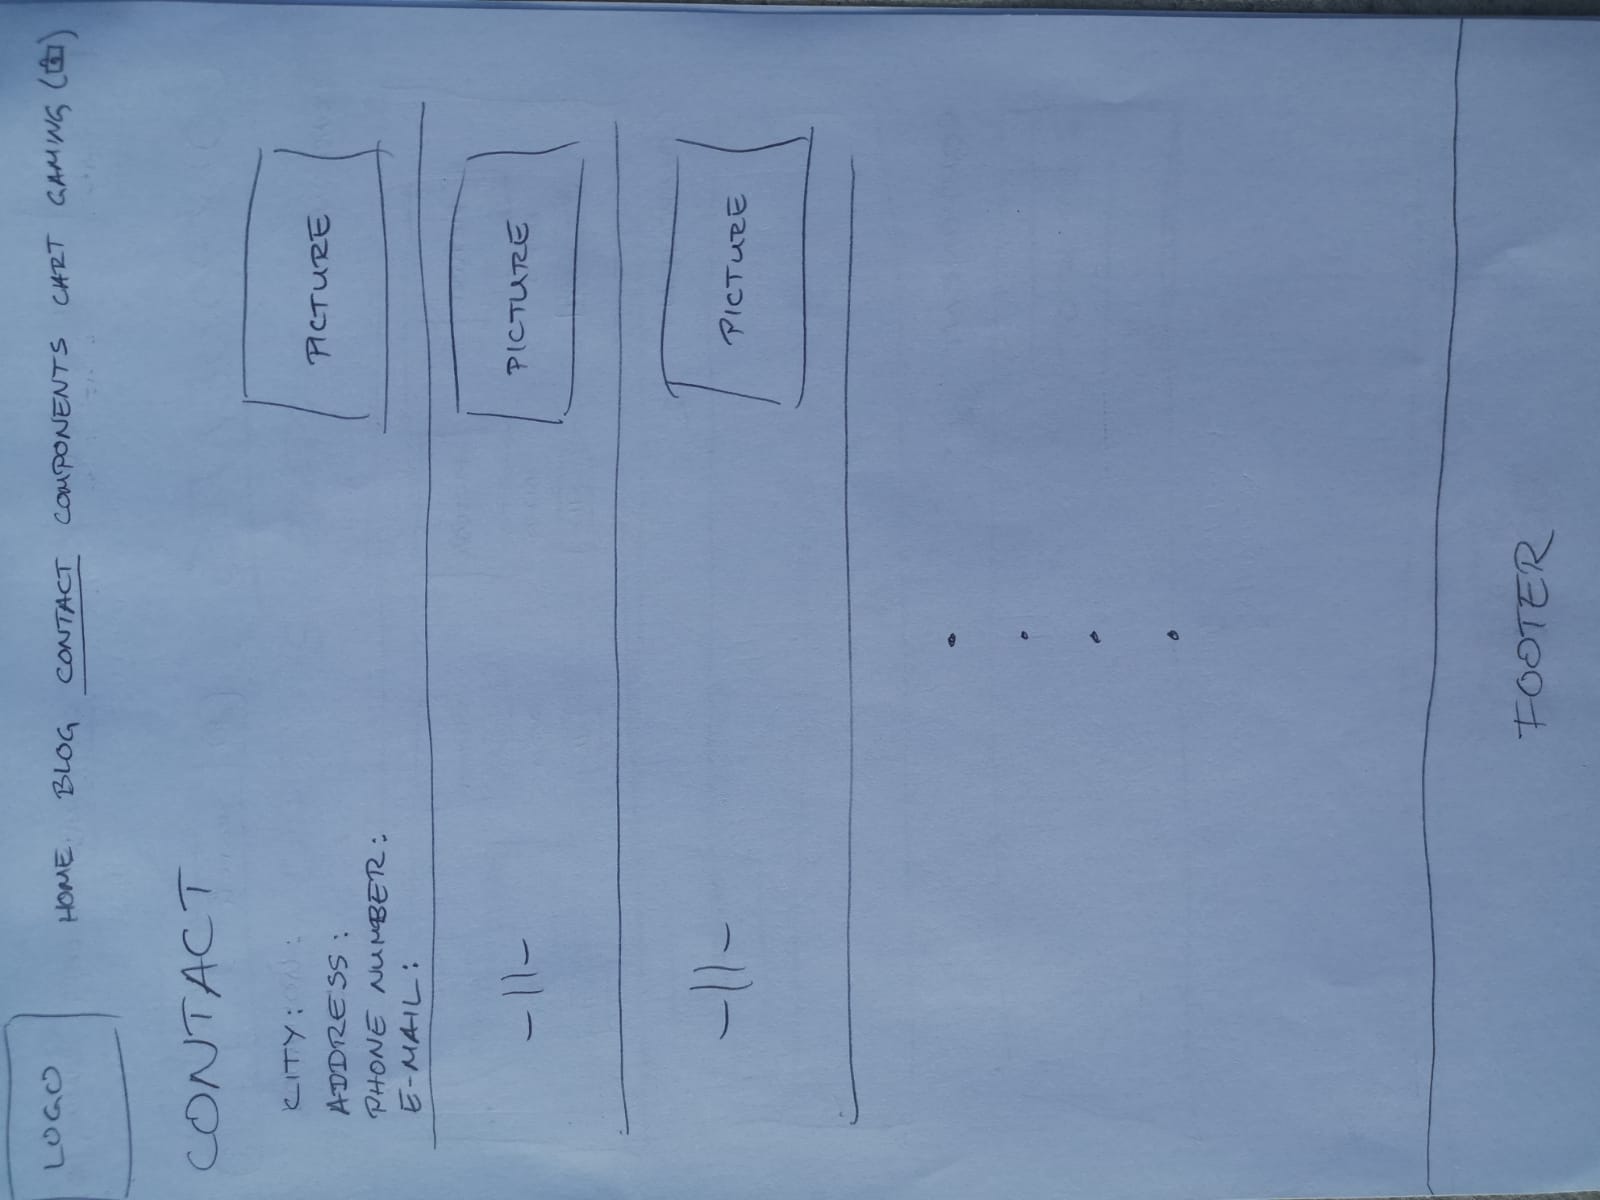 LOGO
HOME BLOG CONTACT COMPONENTS CART GAMING
CONTACT
CITY:
ADDRESS:
PHONE NUMBER:
E-MAIL:
PICTURE
-||-
PICTURE
-||-
PICTURE
FOOTER